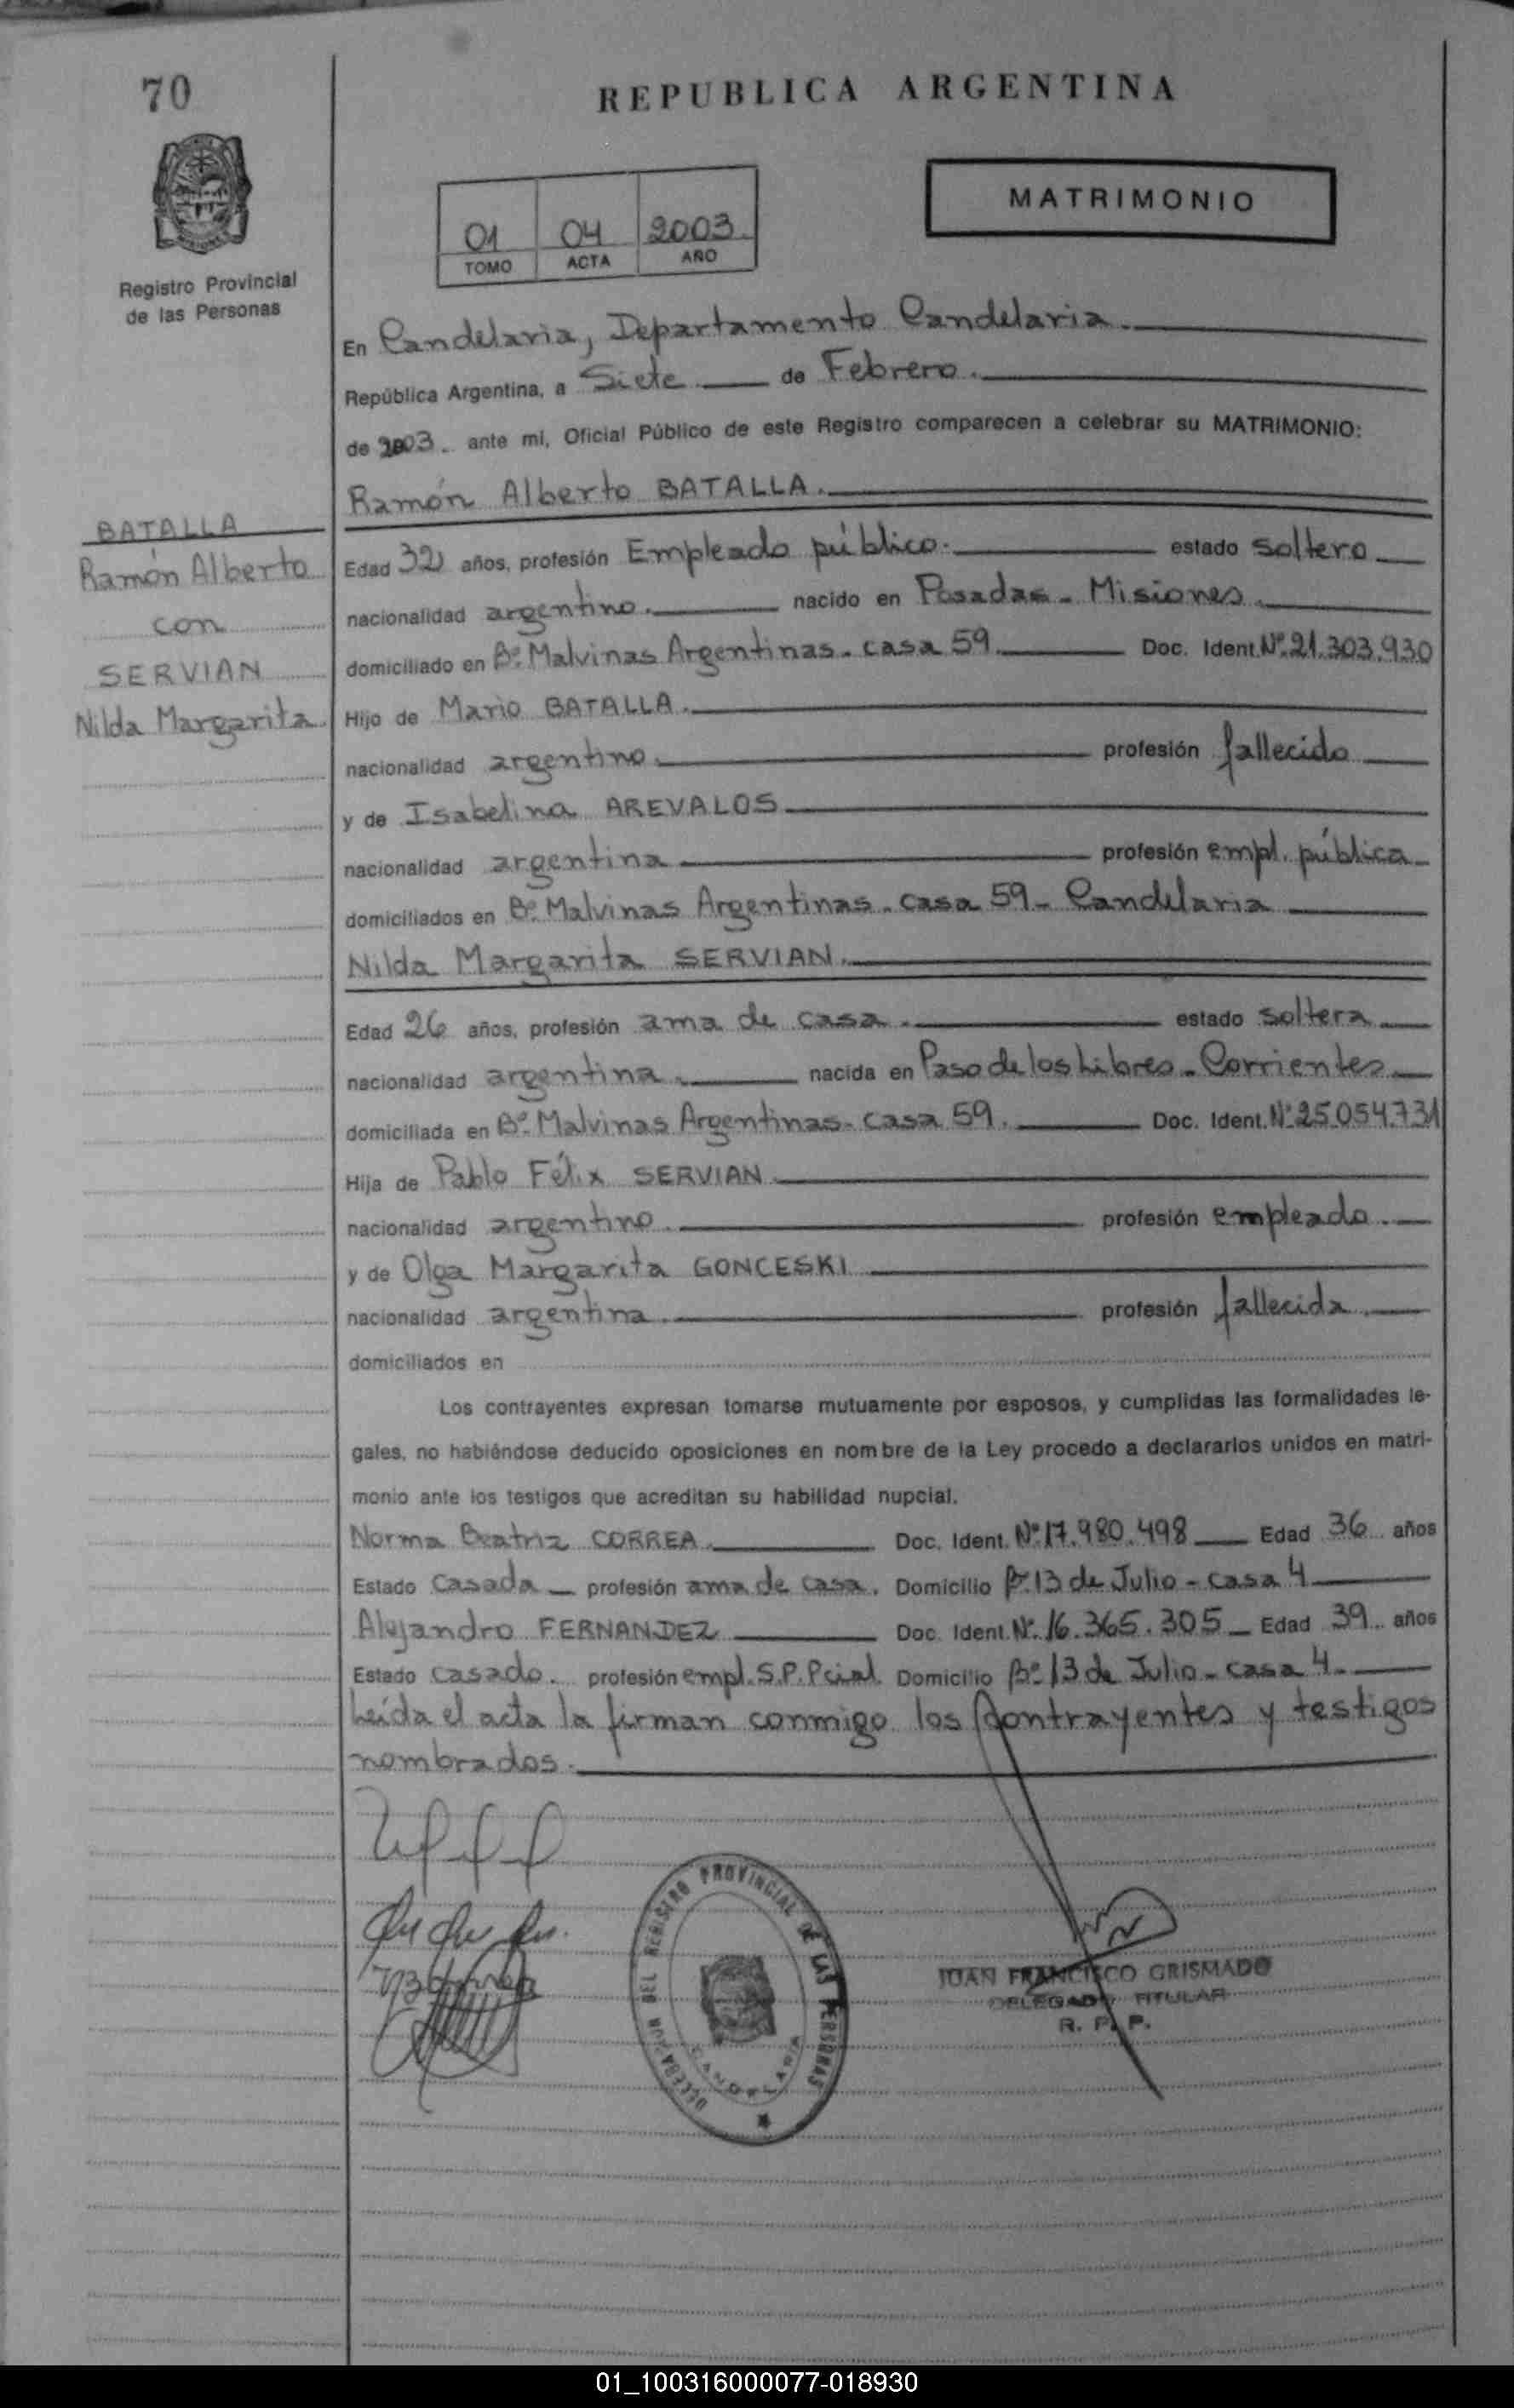 70
REPUBLICA ARGENTINA
MATRIMONIO
01 04 2003
TOMO ACTA AÑO
Registro Provincial
de las Personas
En Candelaria, Departamento Candelaria.
República Argentina, a Siete de Febrero.
de 2003. ante mí, Oficial Público de este Registro comparecen a celebrar su MATRIMONIO:
Ramón Alberto BATALLA.
BATALLA
Ramón Alberto
con
SERVIAN
Nilda Margarita.
Edad 32 años, profesión Empleado público. estado soltero
nacionalidad argentino. nacido en Posadas - Misiones.
domiciliado en Bº Malvinas Argentinas - casa 59. Doc. Ident. Nº 21.303.930
Hijo de Mario BATALLA.
nacionalidad argentino. profesión fallecido
y de Isabelina AREVALOS
nacionalidad argentina profesión empl. pública
domiciliados en Bº Malvinas Argentinas - casa 59 - Candelaria
Nilda Margarita SERVIAN.
Edad 26 años, profesión ama de casa. estado soltera
nacionalidad argentina. nacida en Paso de los Libres - Corrientes
domiciliada en Bº Malvinas Argentinas - casa 59. Doc. Ident. Nº 25.054.731
Hija de Pablo Félix SERVIAN
nacionalidad argentino. profesión empleado.
y de Olga Margarita GONCESKI
nacionalidad argentina. profesión fallecida.
domiciliados en
Los contrayentes expresan tomarse mutuamente por esposos, y cumplidas las formalidades le-
gales, no habiéndose deducido oposiciones en nombre de la Ley procedo a declararlos unidos en matri-
monio ante los testigos que acreditan su habilidad nupcial.
Norma Beatriz CORREA. Doc. Ident. Nº 17.980.498 Edad 36 años
Estado Casada profesión ama de casa. Domicilio Bº 13 de Julio - casa 4
Alejandro FERNANDEZ Doc. Ident. Nº 16.365.305 Edad 39 años
Estado casado. profesión empl. S.P. Pcial. Domicilio Bº 13 de Julio - casa 4.
Leída el acta la firman conmigo los contrayentes y testigos
nombrados.
DELEGACION DEL REGISTRO PROVINCIAL DE LAS PERSONAS
CANDELARIA
JUAN FRANCISCO GRISMADO
DELEGADO TITULAR
R. P. P.
01_100316000077-018930